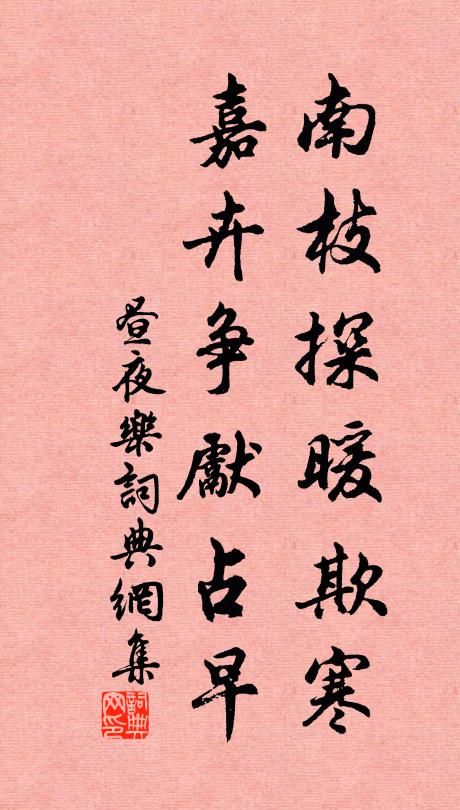 南枝探暖欺寒
嘉卉争獻占早
昼夜樂詞典網集
詞典网印